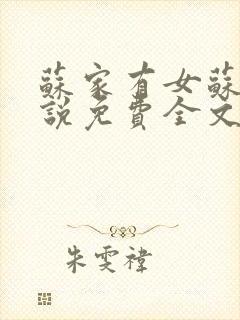 蘇家有女蘇
說免費全文
朱雯禕